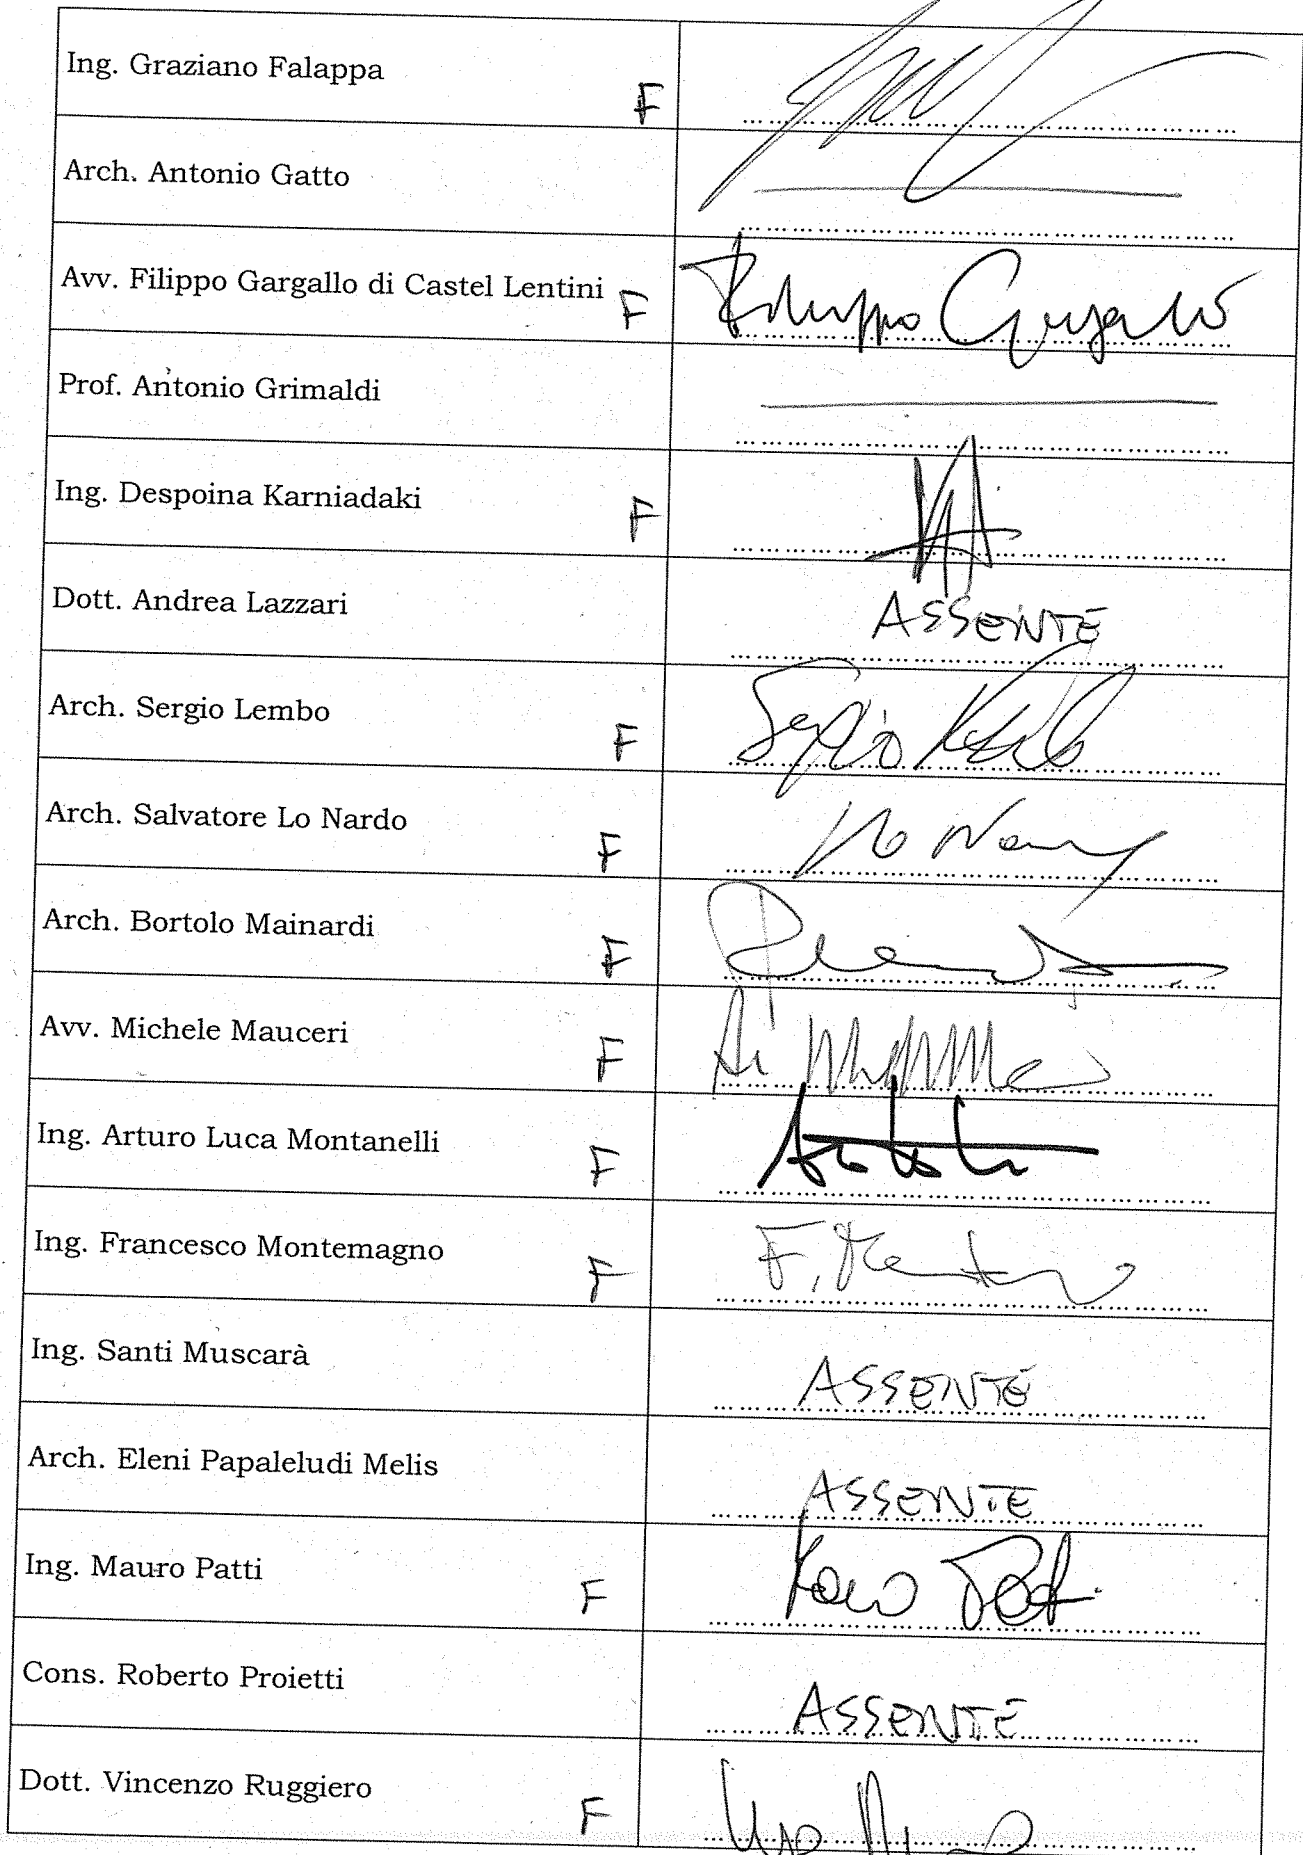 Ing. Graziano Falappa F
Arch. Antonio Gatto
Avv. Filippo Gargallo di Castel Lentini F Filippo Gargallo
Prof. Antonio Grimaldi
Ing. Despoina Karniadaki F
Dott. Andrea Lazzari ASSENTE
Arch. Sergio Lembo F Sergio Lembo
Arch. Salvatore Lo Nardo F Lo Nardo
Arch. Bortolo Mainardi F
Avv. Michele Mauceri F
Ing. Arturo Luca Montanelli F
Ing. Francesco Montemagno F
Ing. Santi Muscarà ASSENTE
Arch. Eleni Papaleludi Melis ASSENTE
Ing. Mauro Patti F
Cons. Roberto Proietti ASSENTE
Dott. Vincenzo Ruggiero F